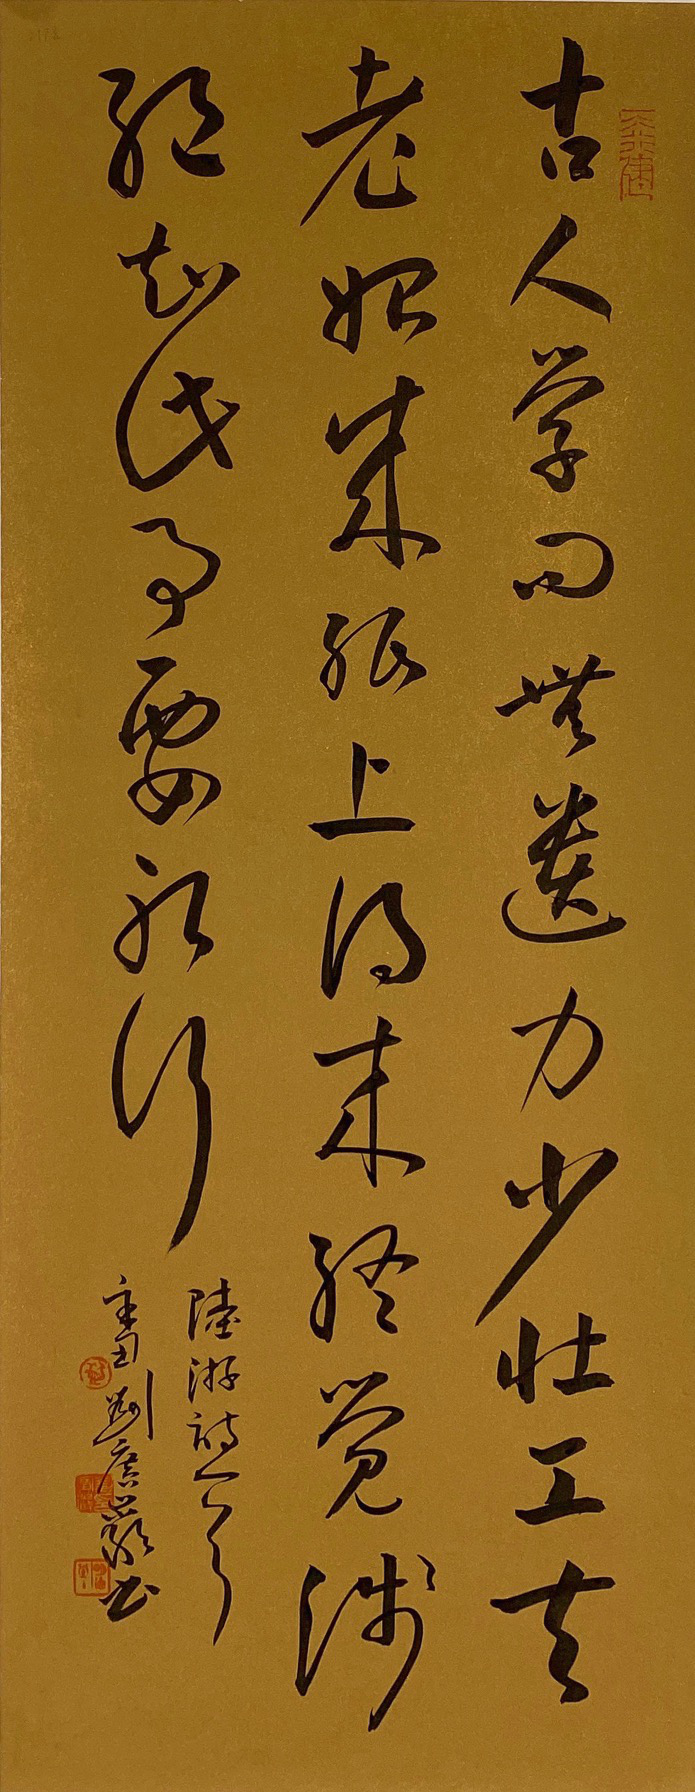 古人学问无遗力少壮工夫
老始成纸上得来终觉浅
绝知此事要躬行
陆游诗一首
刘广严书